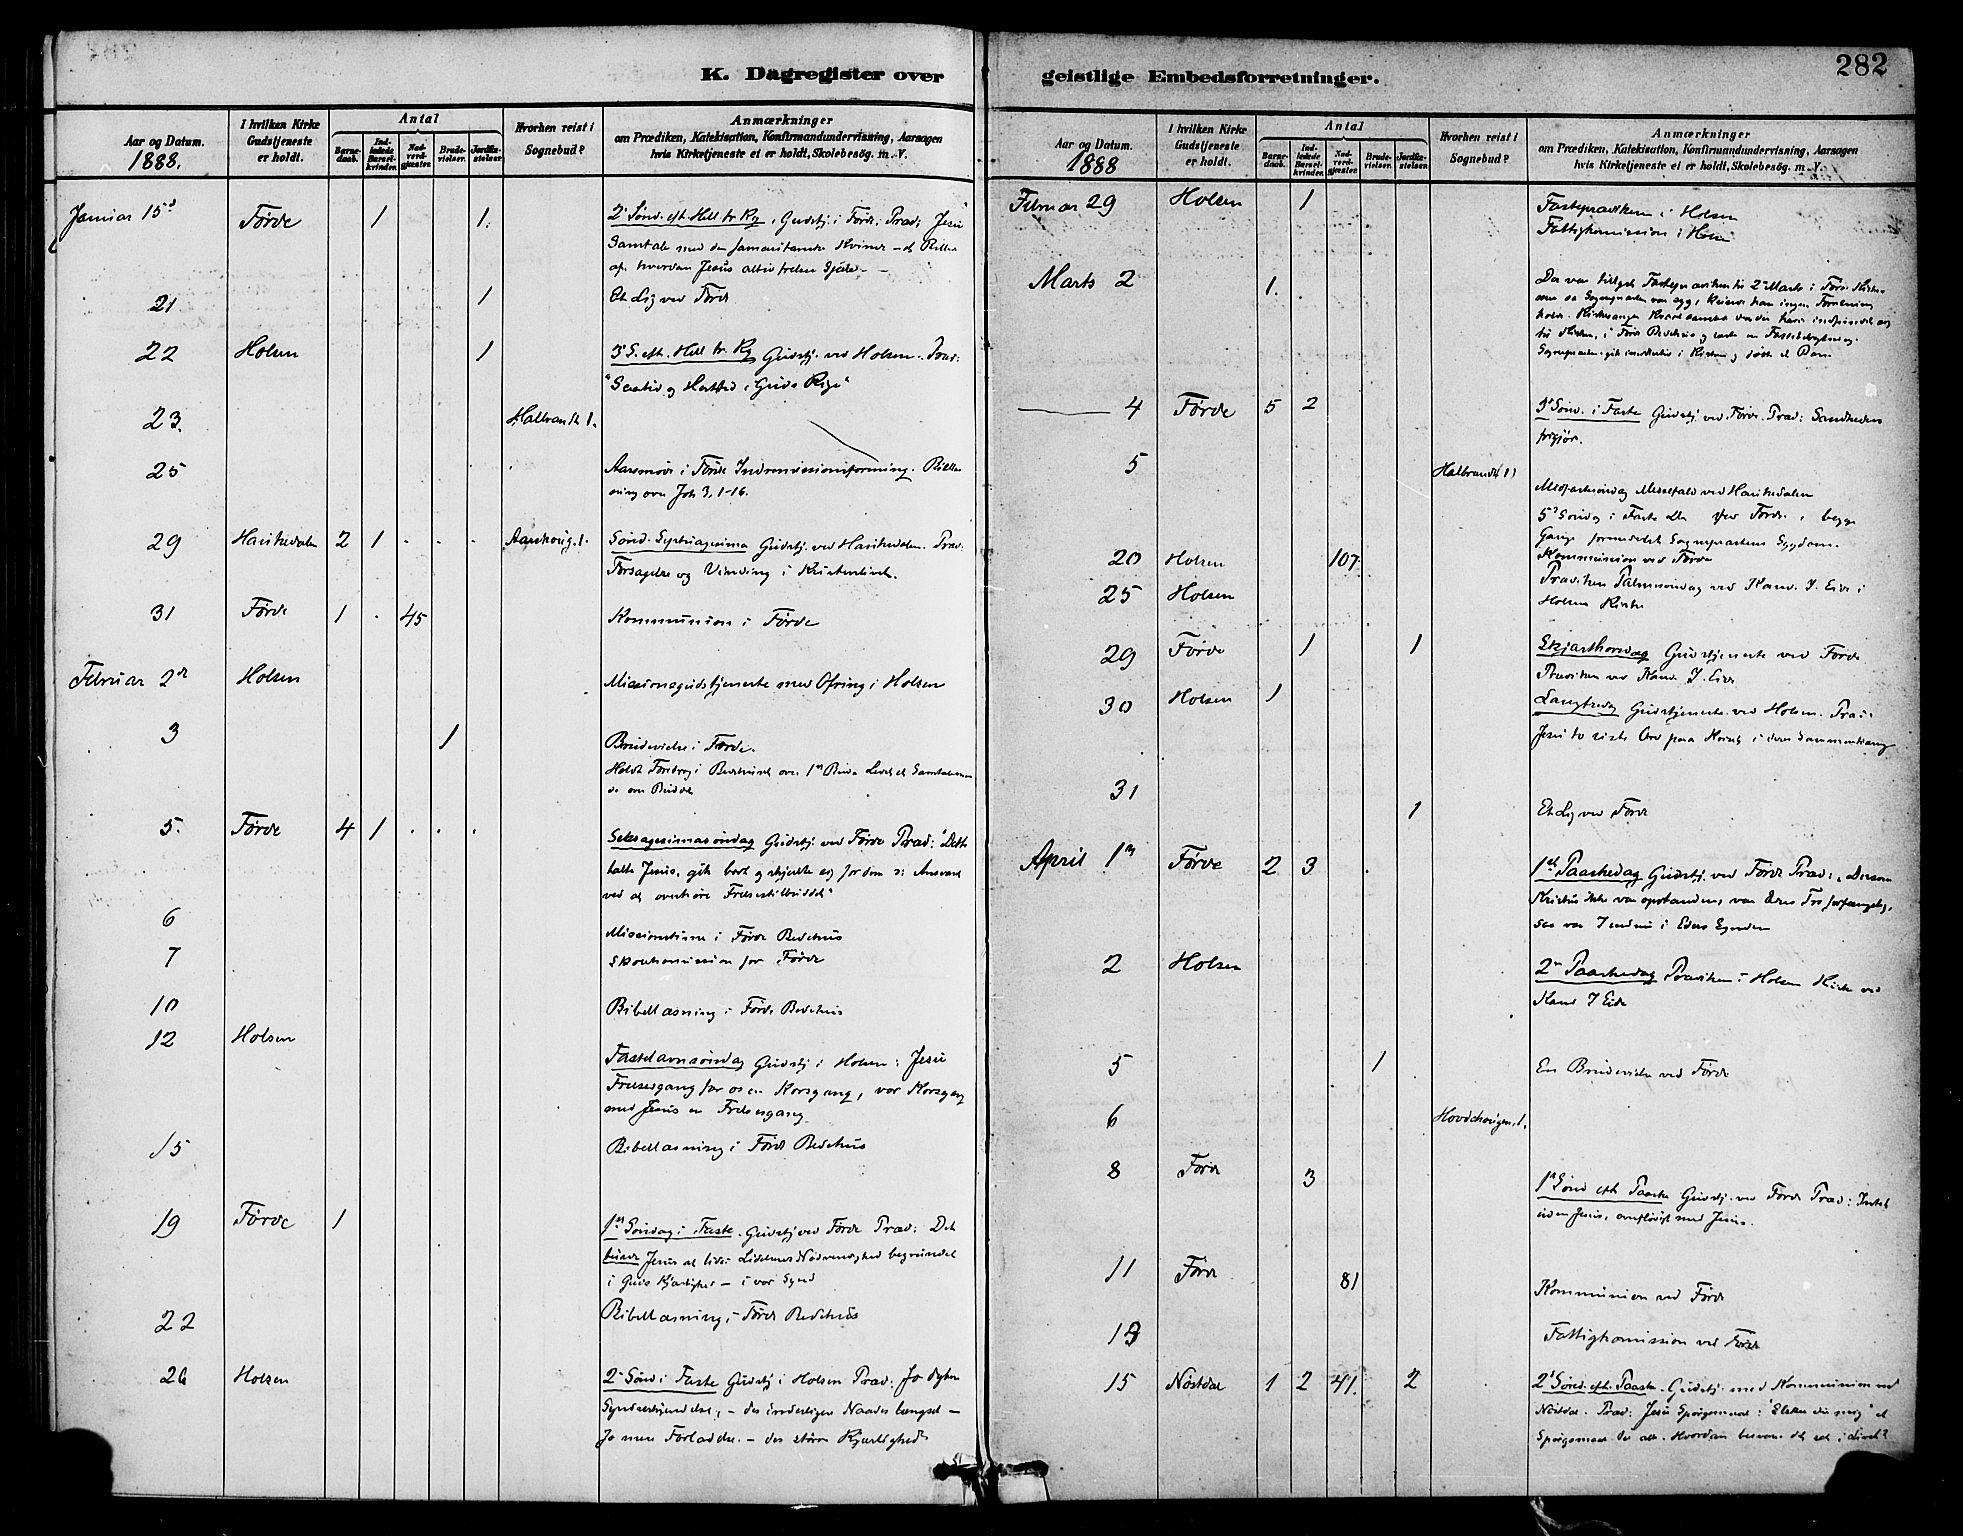 K. Dagregister over
Aar og Datum.
1888.
I hvilken Kirke Gudstjeneste er holdt.
Antal
Barnedaab.
Indledede Barselkvinder.
Nadverdgjæster.
Brudevielser.
Jordfæstelser.
Hvorhen reist i Sognebud?
Anmærkninger
om Prædiken, Katekisation, Konfirmandundervisning, Aarsagen
hvis Kirketjeneste ei er holdt, Skolebesøg. m. V.
Januar 15d Førde 1 1. 2 Sønd. eft. Hell tr Kg, Gudstj. i Førde. Præd: Jesu
Samtale med den samaritanske Kvinde – et Billed
af, hvordan Jesus altid frelser Sjæle. –
21 1 Et Lig ved Førde
22 Holsen 1 3 S. eft. Hell tr. Kg Gudstj. ved Holsen. Præd:
"Sædtid og Høsttid i Guds Rige"
23. Halbrandt 1.
25 Aarsmøde i Førde Indremissionsforening.
over Joh 3, 1-16.
29 Haukedalen 2 1 . . . Sønd. Septuagesima Gudstj. ved Haukedalen. Præd.
Forsagelse og Vinding i Kristenlivet.
31 Førde 1 . 45 Kommunion i Førde
Februar 2d Holsen Missionsgudstjeneste med Ofring i Holsen
3 1 Brudevielse i Førde.
Holdt Foredrag i Bedehuset over
5. Førde 4 1 . . . Seksagesimasøndag Gudstj. ved Førde Præd: "Dette
talte Jesus, gik bort og skjulte sig for dem
ved at overhøre Frelsestilbuddet"
6 Missionstime i Førde Bedehus
7 Skolekommission for Førde
10 Bibellæsning i Førde Bedehus
12 Holsen Fastelavnssøndag Gudstj i Holsen: Jesu
Frelsesgang for os en Korsgang, vor Korsgang
med Jesus en Frelsesgang
15 Bibellæsning i Førde Bedehus
19 Førde 1 1ste Søndag i Faste. Gudstj ved Førde Præd: Det
burde Jesus at lide: Lidelsens Nødvendighed begrundet
i Guds Kjærlighed – i vor Synd
22 Bibellæsning i Førde Bedehus
26 Holsen 2 Sønd i Faste Gudstj i Holsen Præd: Jo dybere
Syndserkjendelse, – des inderligere Naadeslængsel –
Jo mere Forladelse. – des større Kjærlighed
geistlige Embedsforretninger.
282
Aar og Datum.
1888
I hvilken Kirke Gudstjeneste er holdt.
Antal
Barnedaab.
Indledede Barselkvinder.
Nadverdgjæster.
Brudevielser.
Jordfæstelser.
Hvorhen reist i Sognebud?
Anmærkninger
om Prædiken, Katekisation, Konfirmandundervisning, Aarsagen
hvis Kirketjeneste ei er holdt, Skolebesøg. m. V.
Februar 29 Holsen 1 Fasteprædiken i Holsen
Fattigkomission i Holsen
Marts 2 1. Der var tillyst Fasteprædiken til 2 Marts i Førde Kirke
men da Sognepræsten var syg, kunde han ingen Forretning
holde.
Sognepræsten gik imidlertid i Kirken og døbte et Barn
4 Førde 5 2 3 Sønd. i Faste Gudstj ved Førde. Præd: Sandheden
frigjør.
5 Halbrandt 1) Midfastesøndag Messefald ved Haukedalen
5 Søndag i Faste ved Førde, begge
Gange formedelst Sognepræstens Sygdom.
20 Holsen 107 Kommunion ved Førde
25 Holsen Prædiken Palmesøndag ved Kand. J. Eide i
Holsen Kirke
29 Førde 1 1 Skjærthorsdag Gudstjeneste ved Førde
Prædiken ved Kand. J. Eide
30 Holsen 1 Langfredag Gudstjeneste ved Holsen. Præd:
Jesu to sidste Ord paa Korset i deres Sammenhæng
31 1 Et Lig ved Førde
April 1ste Førde 2 3 1ste Paaskedag Gudstj. ved Førde Præd: "Dersom
Kristus ikke var opstanden, var Eders Tro forfængelig,
saa var I endnu i Eders Synder
2 Holsen 2 Paaskedag Prædiken i Holsen Kirke ved
Kand J Eide
5 1 En Brudevielse ved Førde
6 Hovdehougen 1.
8 Førde 3 1 Sønd eft Paaske Gudstj. ved Førde Præd: Intet
uden Jesus, med Jesus.
11 Førde 81 Kommunion ved Førde
13 Fattigkomission ved Førde
15 Nøstdal 1 2 41. 2 2 Sønd. eft. Paaske. Gudstj. med Kommunion ved
Nøstdal. Præd: Jesu Spørgsmaal: "Elsker du mig" et
Spørgsmaal til alle. Hvordan besvare det i Livet?